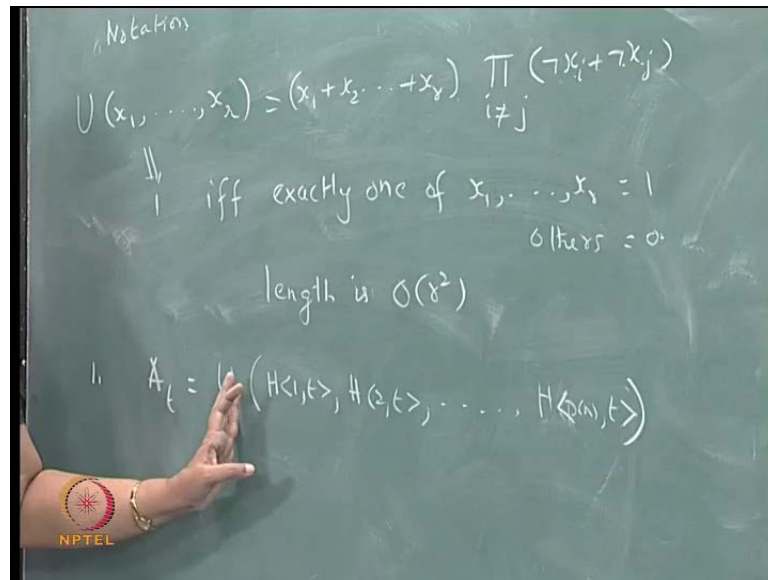 Notation
U(x₁, ...., xᵣ) = (x₁ + x₂ ... + xᵣ) ∏ i≠j (¬xᵢ + ¬xⱼ)
1 iff exactly one of x₁, ..., xᵣ = 1
others = 0.
length is O(r²)
1. Aₜ = U (H<1,t>, H(2,t>, ....., H<p(n),t>)
NPTEL